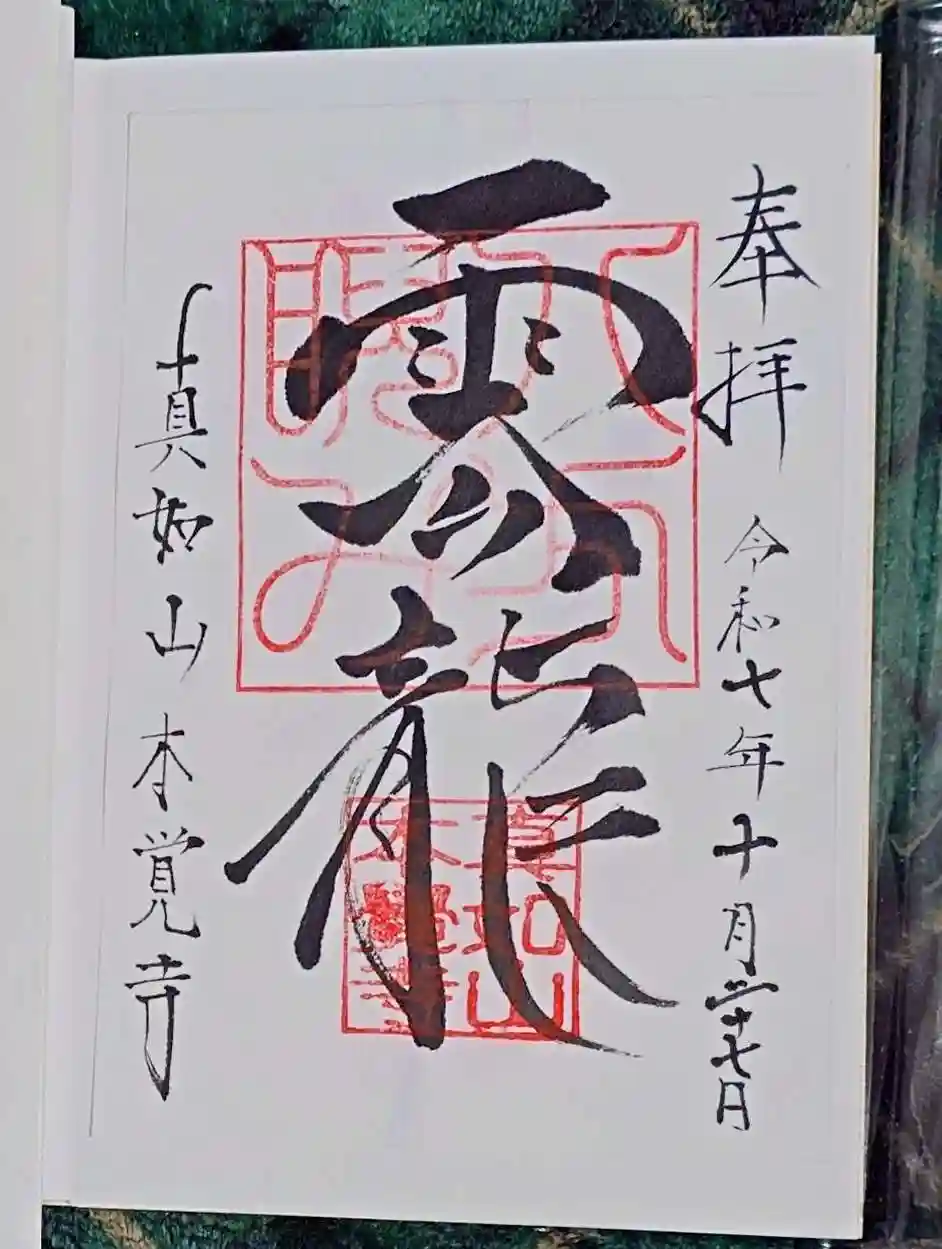 奉拝 令和七年十月二十七日
雲龍
真如山本覚寺
八方睨み
真如山本覺寺